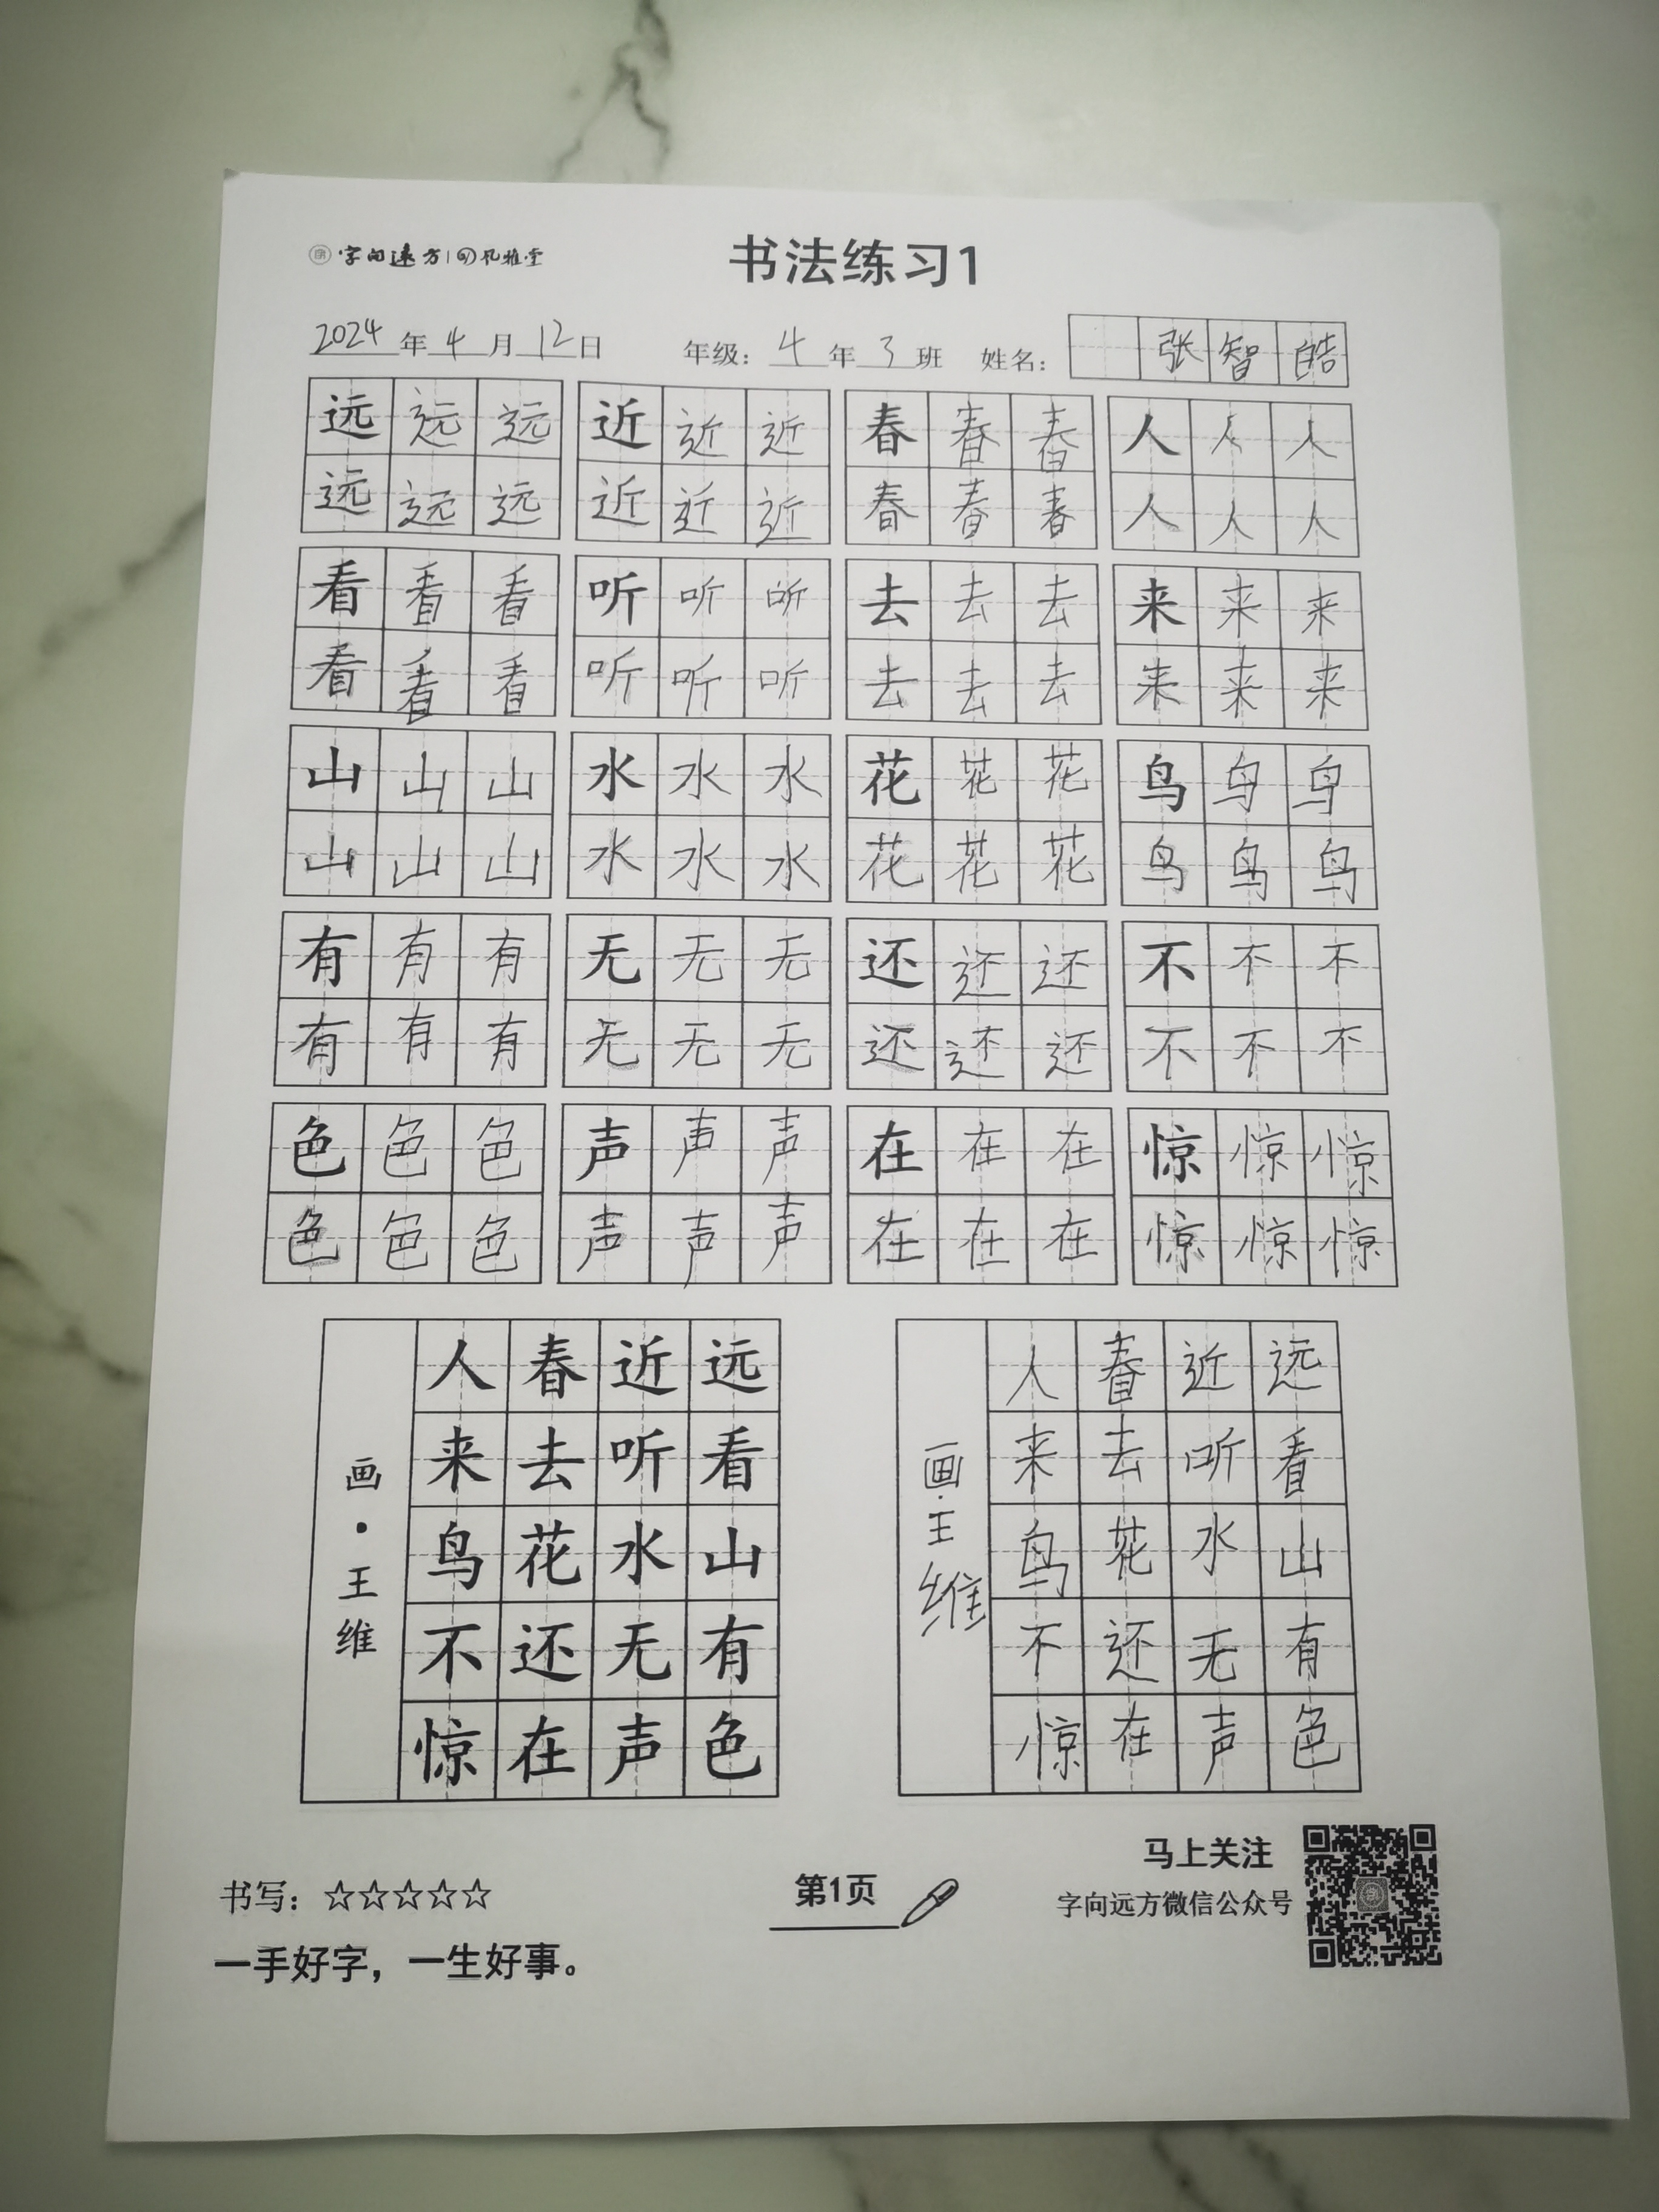 字向远方 风雅堂
书法练习1
2024年4月12日 年级：4年3班 姓名：张智皓
远远远 近近近 春春春 人人人
远远远 近近近 春春春 人人人
看看看 听听听 去去去 来来来
看看看 听听听 去去去 来来来
山山山 水水水 花花花 鸟鸟鸟
山山山 水水水 花花花 鸟鸟鸟
有有有 无无无 还还还 不不不
有有有 无无无 还还还 不不不
色色色 声声声 在在在 惊惊惊
色色色 声声声 在在在 惊惊惊
远看山有色
近听水无声
春去花还在
人来鸟不惊
画·王维
远看山有色
近听水无声
春去花还在
人来鸟不惊
画·王维
书写：☆☆☆☆☆
一手好字，一生好事。
第1页
马上关注
字向远方微信公众号